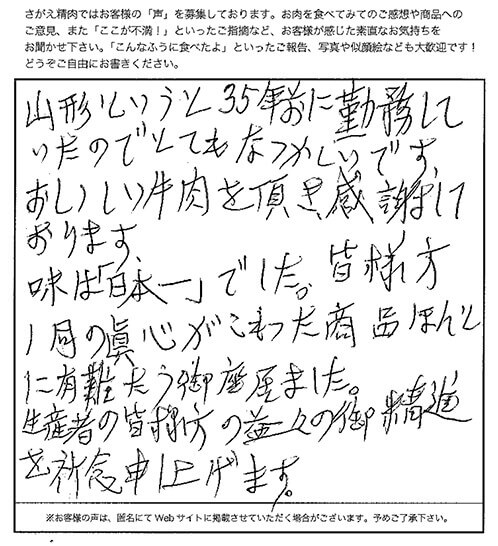 さがえ精肉ではお客様の「声」を募集しております。お肉を食べてみてのご感想や商品への
ご意見、また「ここが不満！」といったご指摘など、お客様が感じた素直なお気持ちを
お聞かせ下さい。「こんなふうに食べたよ」といったご報告、写真や似顔絵なども大歓迎です！
どうぞご自由にお書きください。
山形というと35年前に勤務して
いたのでとてもなつかしいです。
おいしい牛肉を頂き、感謝して
おります。
味は「日本一」でした。皆様方
の真心がこもった商品ほんと
に有難とう御座居ました。
生産者の皆様方の益々の御精進
を祈念申し上げます。
※お客様の声は、匿名にてWebサイトに掲載させていただく場合がございます。予めご了承下さい。